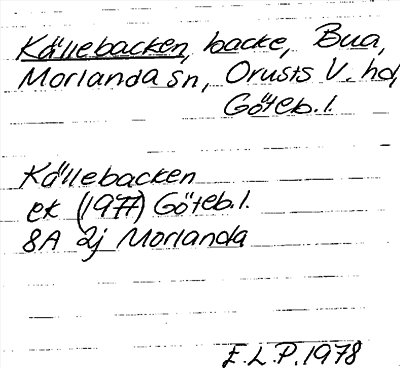 Källebacken, backe, Bua,
Morlanda sn, Orusts V. hd,
Göteb. l.
Källebacken
ek (1977) Göteb. l.
8A 2j Morlanda
E.L.P. 1978